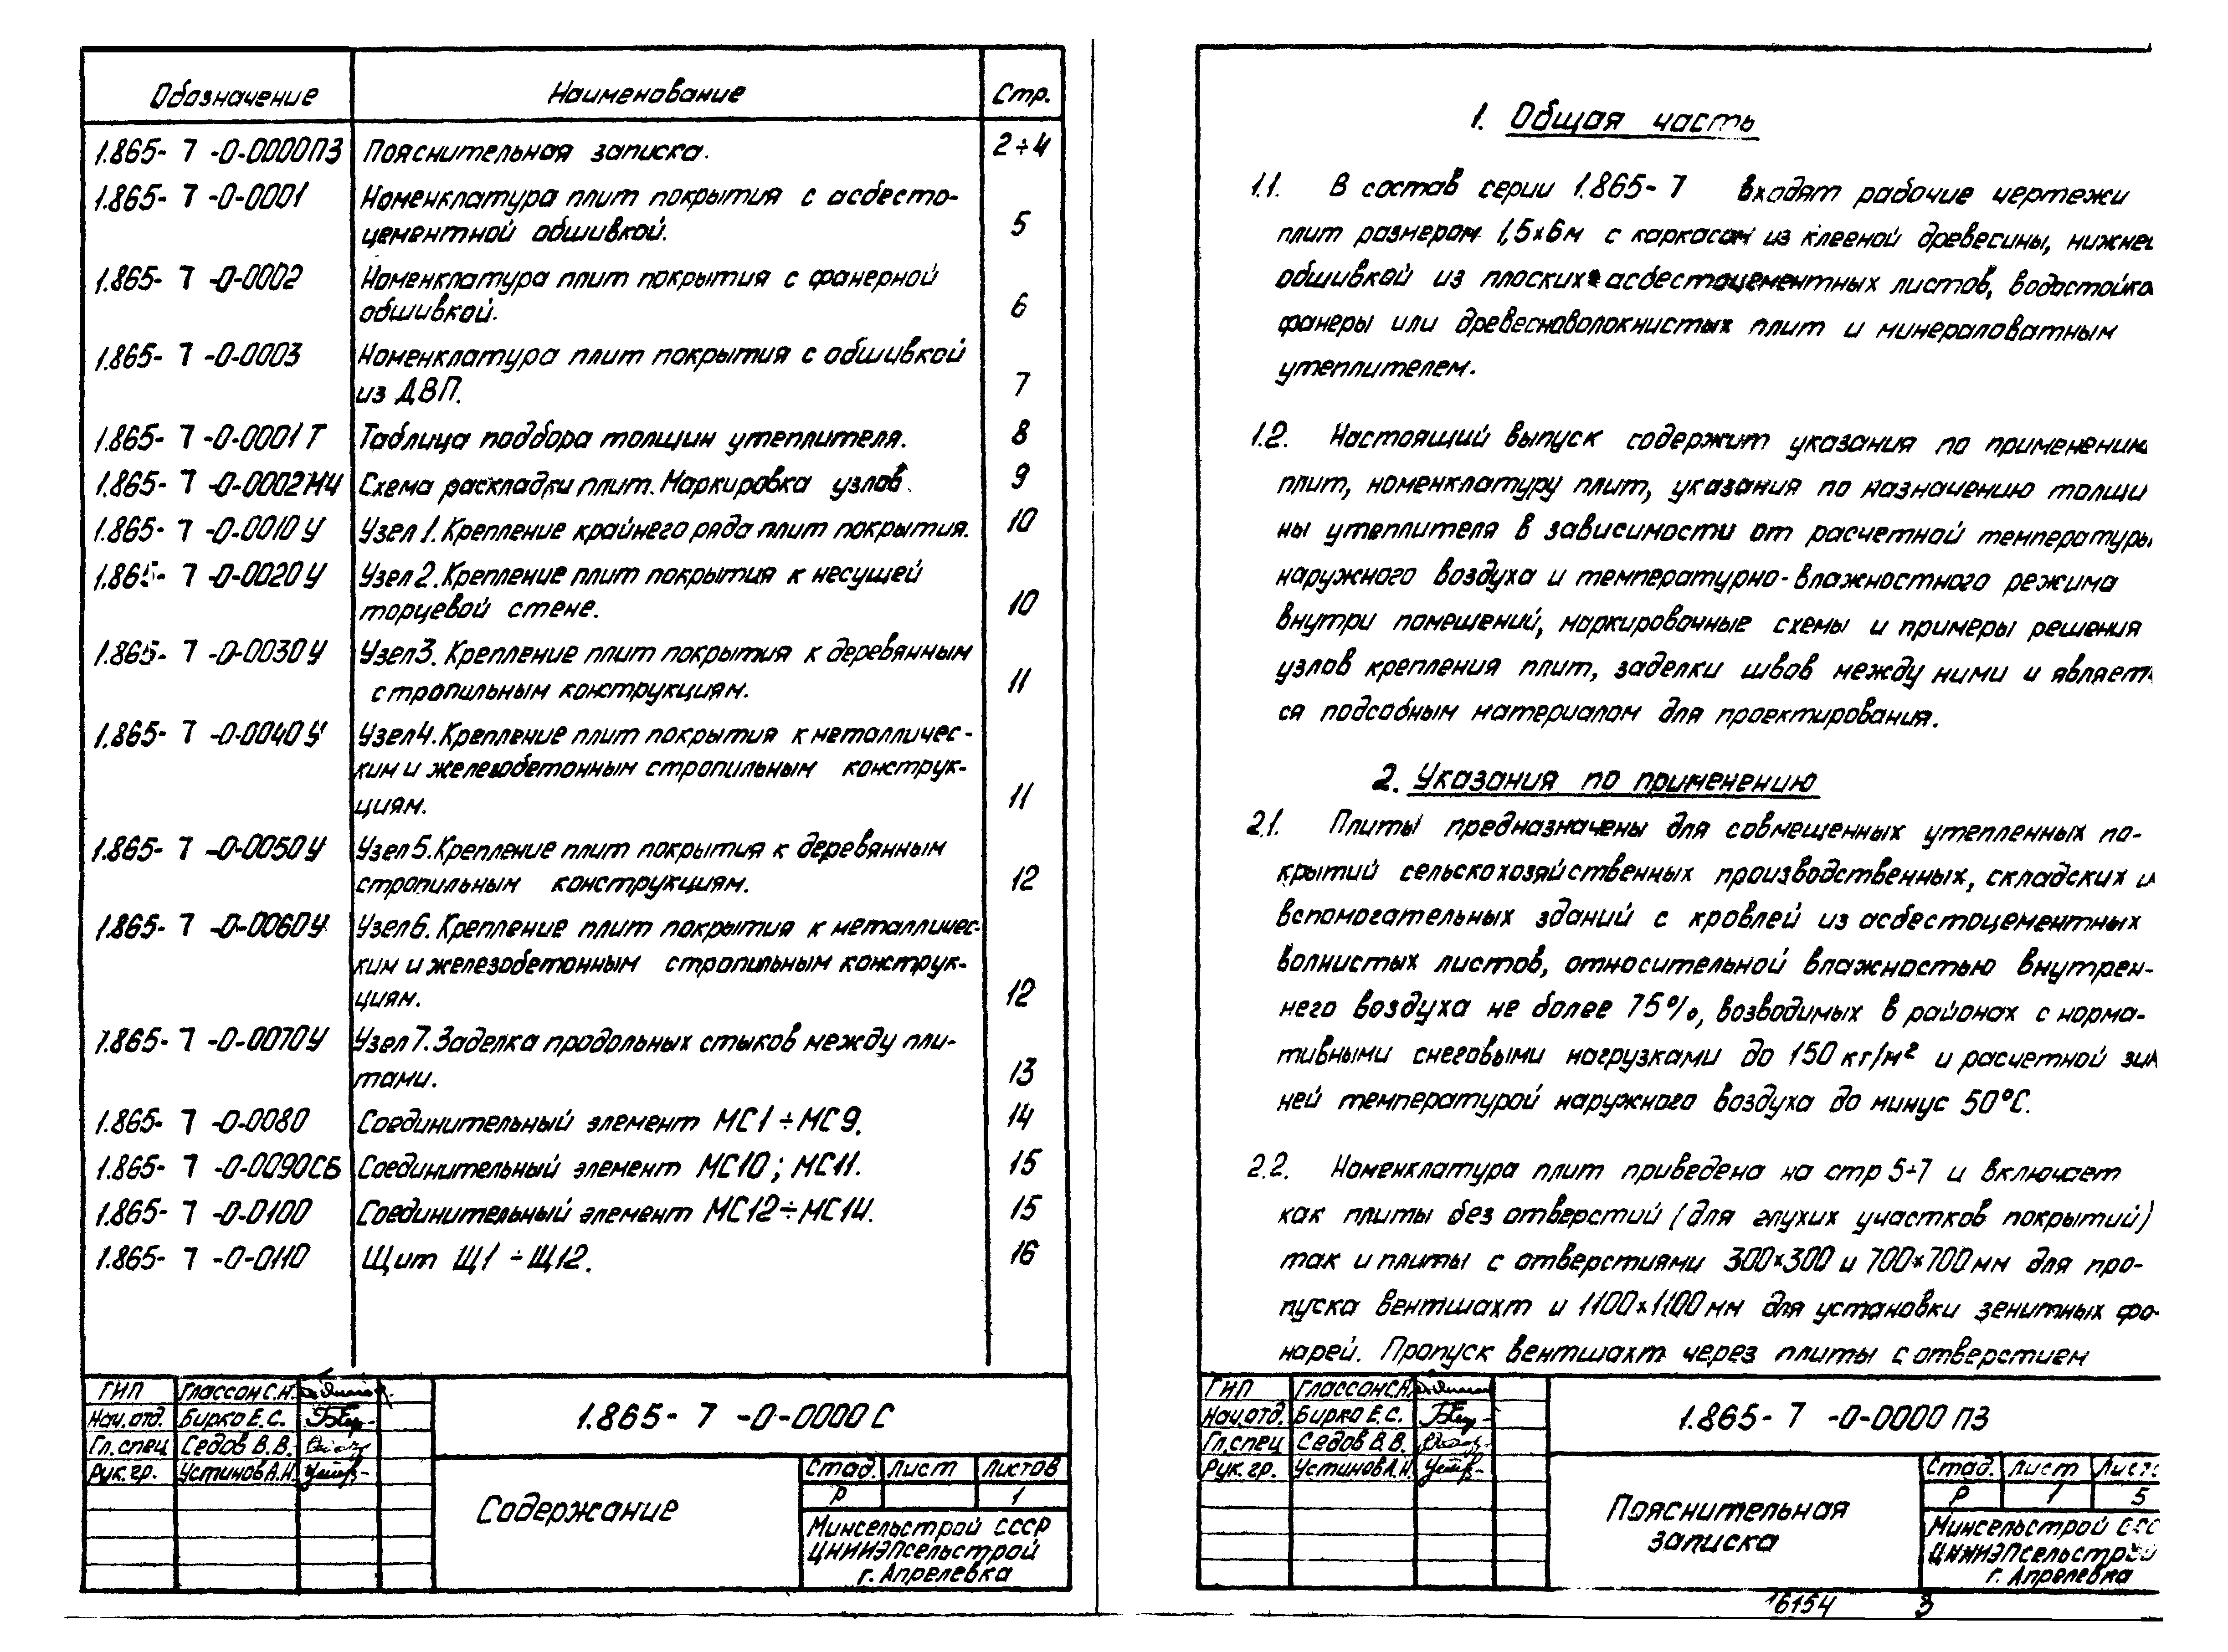 Обозначение Наименование Стр.
1.865- 7 -0-0000ПЗ Пояснительная записка. 2÷4
1.865- 7 -0-0001 Номенклатура плит покрытия с асбесто-
цементной обшивкой. 5
1.865- 7 -0-0002 Номенклатура плит покрытия с фанерной
обшивкой. 6
1.865- 7 -0-0003 Номенклатура плит покрытия с обшивкой
из ДВП. 7
1.865- 7 -0-0001Т Таблица подбора толщин утеплителя. 8
1.865- 7 -0-0002МЧ Схема раскладки плит. Маркировка узлов. 9
1.865- 7 -0-0010У Узел 1. Крепление крайнего ряда плит покрытия. 10
1.865- 7 -0-0020У Узел 2. Крепление плит покрытия к несущей
торцевой стене. 10
1.865- 7 -0-0030У Узел 3. Крепление плит покрытия к деревянным
стропильным конструкциям. 11
1.865- 7 -0-0040У Узел 4. Крепление плит покрытия к металличес-
ким и железобетонным стропильным конструк-
циям. 11
1.865- 7 -0-0050У Узел 5. Крепление плит покрытия к деревянным
стропильным конструкциям. 12
1.865- 7 -0-0060У Узел 6. Крепление плит покрытия к металличес-
ким и железобетонным стропильным конструк-
циям. 12
1.865- 7 -0-0070У Узел 7. Заделка продольных стыков между пли-
тами. 13
1.865- 7 -0-0080 Соединительный элемент МС1÷МС9. 14
1.865- 7 -0-0090СБ Соединительный элемент МС10; МС11. 15
1.865- 7 -0-0100 Соединительный элемент МС12÷МС14. 15
1.865- 7 -0-0110 Щит Щ1 ÷ Щ12. 16
ГИП Глассон С.Н.
Нач.отд. Бирко Е.С.
Гл.спец Седов В.В.
Рук.гр. Устинов А.Н.
1.865- 7 -0-0000 С
Содержание
Стад. Лист Листов
Р 1
Минсельстрой СССР
ЦНИИЭПсельстрой
г. Апрелевка
1. Общая часть
1.1. В состав серии 1.865- 7 входят рабочие чертежи
плит размером 1,5×6м с каркасом из клееной древесины, нижней
обшивкой из плоских асбестоцементных листов, водостойко
фанеры или древесноволокнистых плит и минераловатным
утеплителем.
1.2. Настоящий выпуск содержит указания по применению
плит, номенклатуру плит, указания по назначению толщи
ны утеплителя в зависимости от расчетной температуры
наружного воздуха и температурно-влажностного режима
внутри помещений, маркировочные схемы и примеры решения
узлов крепления плит, заделки швов между ними и являет
ся подсобным материалом для проектирования.
2. Указания по применению
2.1. Плиты предназначены для совмещенных утепленных по-
крытий сельскохозяйственных производственных, складских и
вспомогательных зданий с кровлей из асбестоцементных
волнистых листов, относительной влажностью внутрен-
него воздуха не более 75%, возводимых в районах с норма-
тивными снеговыми нагрузками до 150 кг/м² и расчетной зим
ней температурой наружного воздуха до минус 50°С.
2.2. Номенклатура плит приведена на стр 5÷7 и включает
как плиты без отверстий (для глухих участков покрытий)
так и плиты с отверстиями 300×300 и 700×700мм для про-
пуска вентшахт и 1100×1100мм для установки зенитных фо-
нарей. Пропуск вентшахт через плиты с отверстием
ГИП Глассон С.Н.
Нач.отд. Бирко Е.С.
Гл.спец Седов В.В.
Рук.гр. Устинов А.Н.
1.865- 7 -0-0000 ПЗ
Пояснительная
записка
Стад. Лист Листо
Р 1 5
Минсельстрой ССС
ЦНИИЭПсельстрой
г. Апрелевка
16154 3